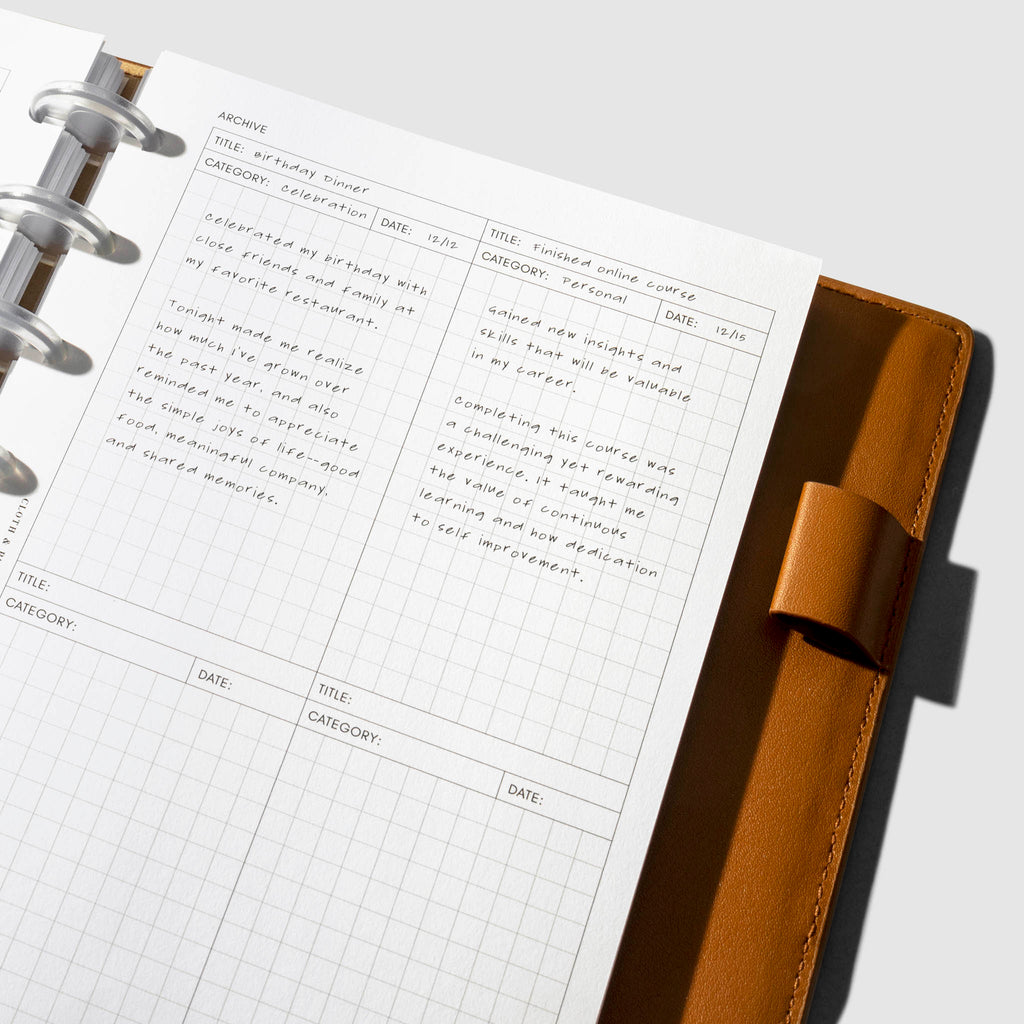 ARCHIVE
TITLE: Birthday Dinner
CATEGORY: Celebration DATE: 12/12
Celebrated my birthday with
close friends and family at
my favorite restaurant.
Tonight made me realize
how much i've grown over
the past year, and also
reminded me to appreciate
the simple joys of life--good
food, meaningful company,
and shared memories.
TITLE: Finished online course
CATEGORY: Personal DATE: 12/15
Gained new insights and
skills that will be valuable
in my career.
Completing this course was
a challenging yet rewarding
experience. It taught me
the value of continuous
learning and how dedication
to self improvement.
TITLE:
CATEGORY:
DATE:
TITLE:
CATEGORY:
DATE:
CLOTH &